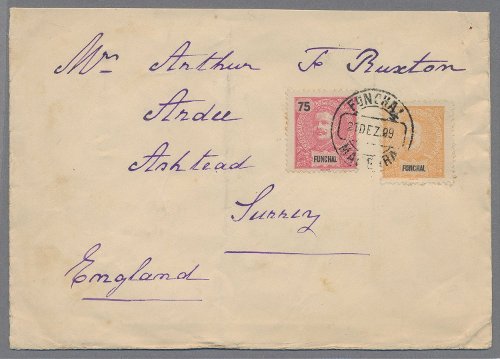 Mr Arthur F Ruxton
Ardee
Ashtead
Surrey
England
75
FUNCHAL
FUNCHAL
FUNCHAL
DEZ.99